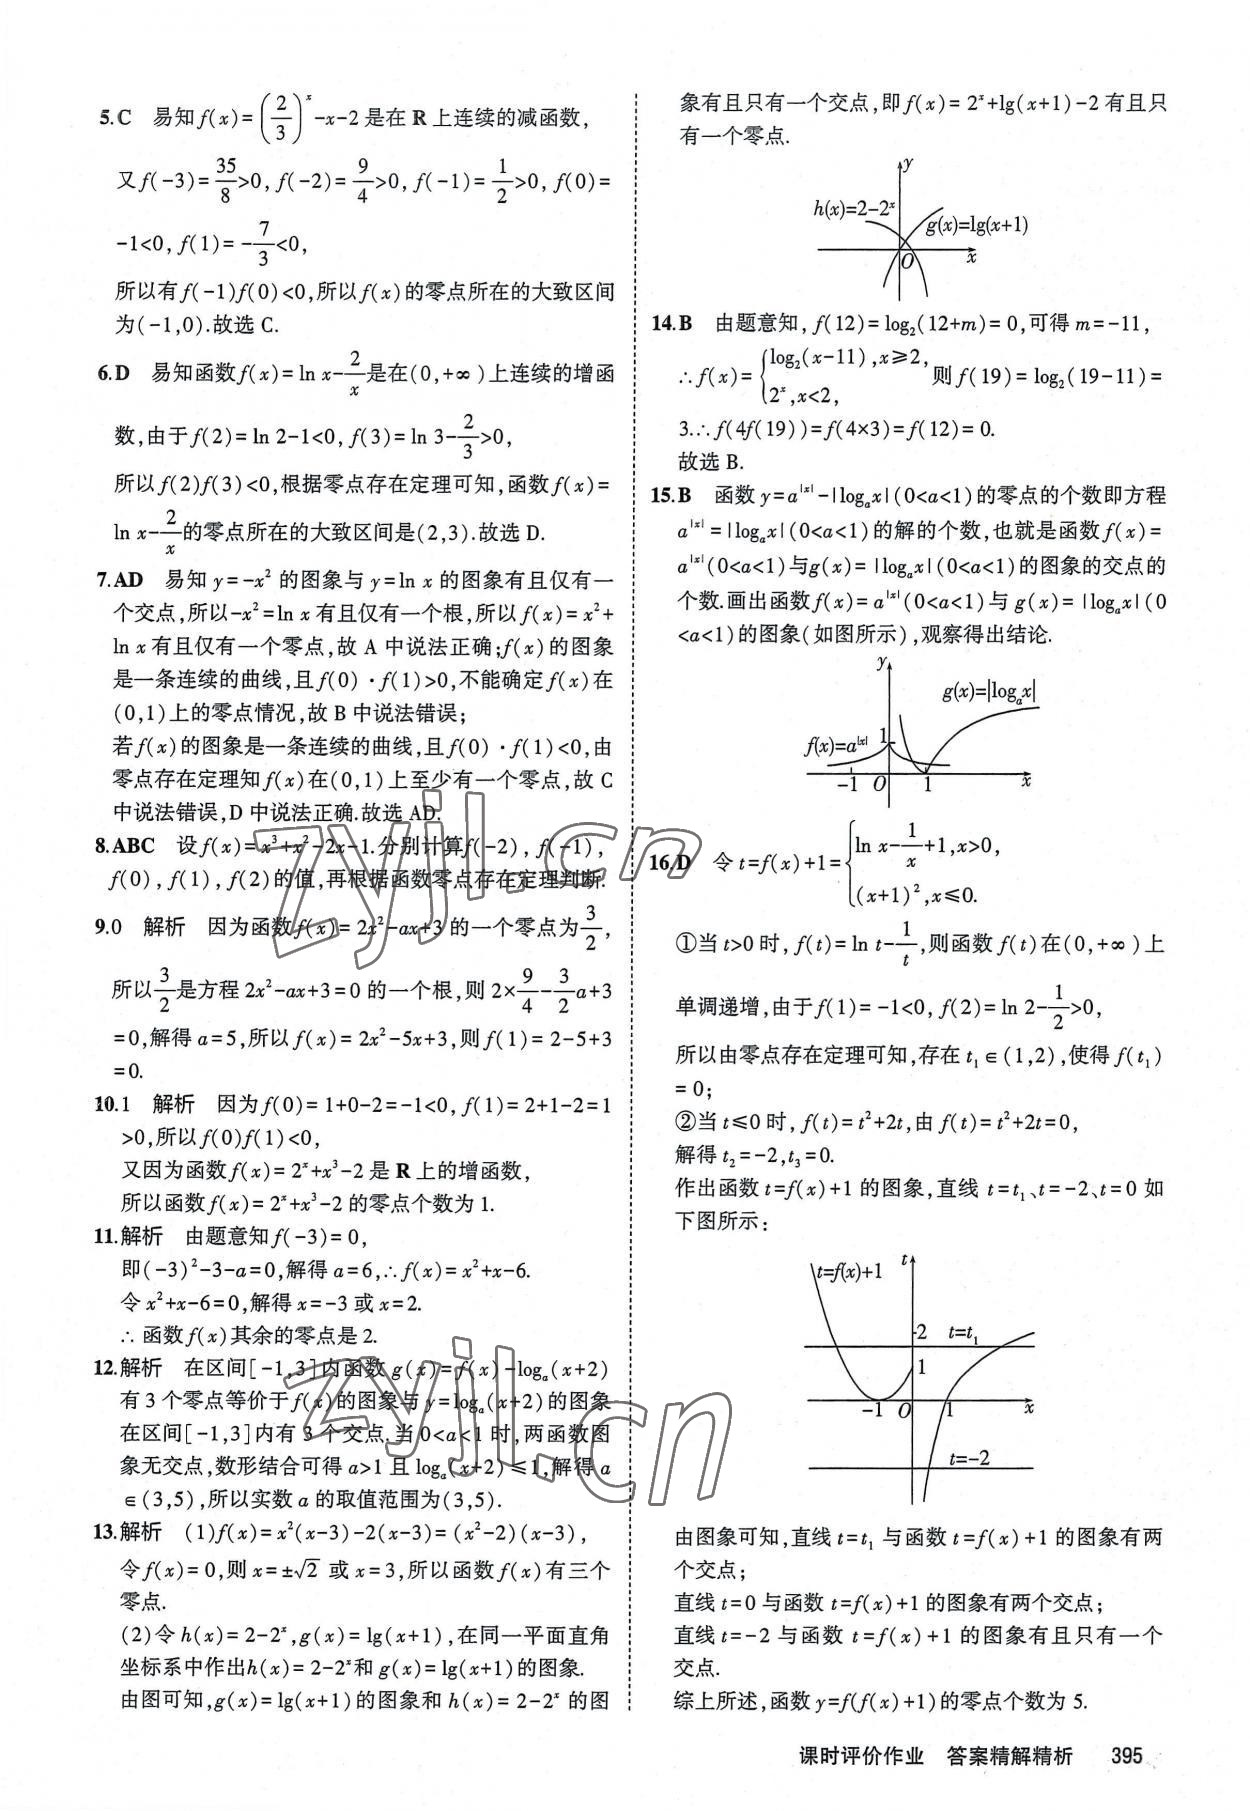 5.C 易知f(x)=(2/3)^x-x-2是在R上连续的减函数,
又f(-3)=35/8>0,f(-2)=9/4>0,f(-1)=1/2>0,f(0)=
-1<0,f(1)=-7/3<0,
所以有f(-1)f(0)<0,所以f(x)的零点所在的大致区间
为(-1,0).故选C.
6.D 易知函数f(x)=ln x-2/x是在(0,+∞)上连续的增函
数,由于f(2)=ln 2-1<0,f(3)=ln 3-2/3>0,
所以f(2)f(3)<0,根据零点存在定理可知,函数f(x)=
ln x-2/x的零点所在的大致区间是(2,3).故选D.
7.AD 易知y=-x²的图象与y=ln x的图象有且仅有一
个交点,所以-x²=ln x有且仅有一个根,所以f(x)=x²+
ln x有且仅有一个零点,故A中说法正确;f(x)的图象
是一条连续的曲线,且f(0)·f(1)>0,不能确定f(x)在
(0,1)上的零点情况,故B中说法错误;
若f(x)的图象是一条连续的曲线,且f(0)·f(1)<0,由
零点存在定理知f(x)在(0,1)上至少有一个零点,故C
中说法错误,D中说法正确.故选AD.
8.ABC 设f(x)=x³+x²-2x-1.分别计算f(-2),f(-1),
f(0),f(1),f(2)的值,再根据函数零点存在定理判断.
9.0 解析 因为函数f(x)=2x²-ax+3的一个零点为3/2,
所以3/2是方程2x²-ax+3=0的一个根,则2×9/4-3/2a+3
=0,解得a=5,所以f(x)=2x²-5x+3,则f(1)=2-5+3
=0.
10.1 解析 因为f(0)=1+0-2=-1<0,f(1)=2+1-2=1
>0,所以f(0)f(1)<0,
又因为函数f(x)=2^x+x³-2是R上的增函数,
所以函数f(x)=2^x+x³-2的零点个数为1.
11.解析 由题意知f(-3)=0,
即(-3)²-3-a=0,解得a=6,∴f(x)=x²+x-6.
令x²+x-6=0,解得x=-3或x=2.
∴函数f(x)其余的零点是2.
12.解析 在区间[-1,3]内函数g(x)=f(x)-logₐ(x+2)
有3个零点等价于f(x)的图象与y=logₐ(x+2)的图象
在区间[-1,3]内有3个交点.当0<a<1时,两函数图
象无交点,数形结合可得a>1且logₐ(x+2)≤1,解得a
∈(3,5),所以实数a的取值范围为(3,5).
13.解析 (1)f(x)=x²(x-3)-2(x-3)=(x²-2)(x-3),
令f(x)=0,则x=±√2或x=3,所以函数f(x)有三个
零点.
(2)令h(x)=2-2^x,g(x)=lg(x+1),在同一平面直角
坐标系中作出h(x)=2-2^x和g(x)=lg(x+1)的图象.
由图可知,g(x)=lg(x+1)的图象和h(x)=2-2^x的图
象有且只有一个交点,即f(x)=2^x+lg(x+1)-2有且只
有一个零点.
y
h(x)=2-2^x
g(x)=lg(x+1)
O x
14.B 由题意知,f(12)=log₂(12+m)=0,可得m=-11,
∴f(x)={log₂(x-11),x≥2,
2^x,x<2,
则f(19)=log₂(19-11)=
3.∴f(4f(19))=f(4×3)=f(12)=0.
故选B.
15.B 函数y=a^|x|-|logₐx|(0<a<1)的零点的个数即方程
a^|x|=|logₐx|(0<a<1)的解的个数,也就是函数f(x)=
a^|x|(0<a<1)与g(x)=|logₐx|(0<a<1)的图象的交点的
个数.画出函数f(x)=a^|x|(0<a<1)与g(x)=|logₐx|(0
<a<1)的图象(如图所示),观察得出结论.
y
g(x)=|logₐx|
f(x)=a^|x| 1
-1 O 1 x
16.D 令t=f(x)+1={ln x-1/x+1,x>0,
(x+1)²,x≤0.
①当t>0时,f(t)=ln t-1/t,则函数f(t)在(0,+∞)上
单调递增,由于f(1)=-1<0,f(2)=ln 2-1/2>0,
所以由零点存在定理可知,存在t₁∈(1,2),使得f(t₁)
=0;
②当t≤0时,f(t)=t²+2t,由f(t)=t²+2t=0,
解得t₂=-2,t₃=0.
作出函数t=f(x)+1的图象,直线t=t₁、t=-2、t=0如
下图所示:
t
t=f(x)+1
2 t=t₁
1
-1 O 1 x
t=-2
由图象可知,直线t=t₁与函数t=f(x)+1的图象有两
个交点;
直线t=0与函数t=f(x)+1的图象有两个交点;
直线t=-2与函数t=f(x)+1的图象有且只有一个
交点.
综上所述,函数y=f(f(x)+1)的零点个数为5.
zyjl.cn
zyjl.cn
课时评价作业 答案精解精析 395